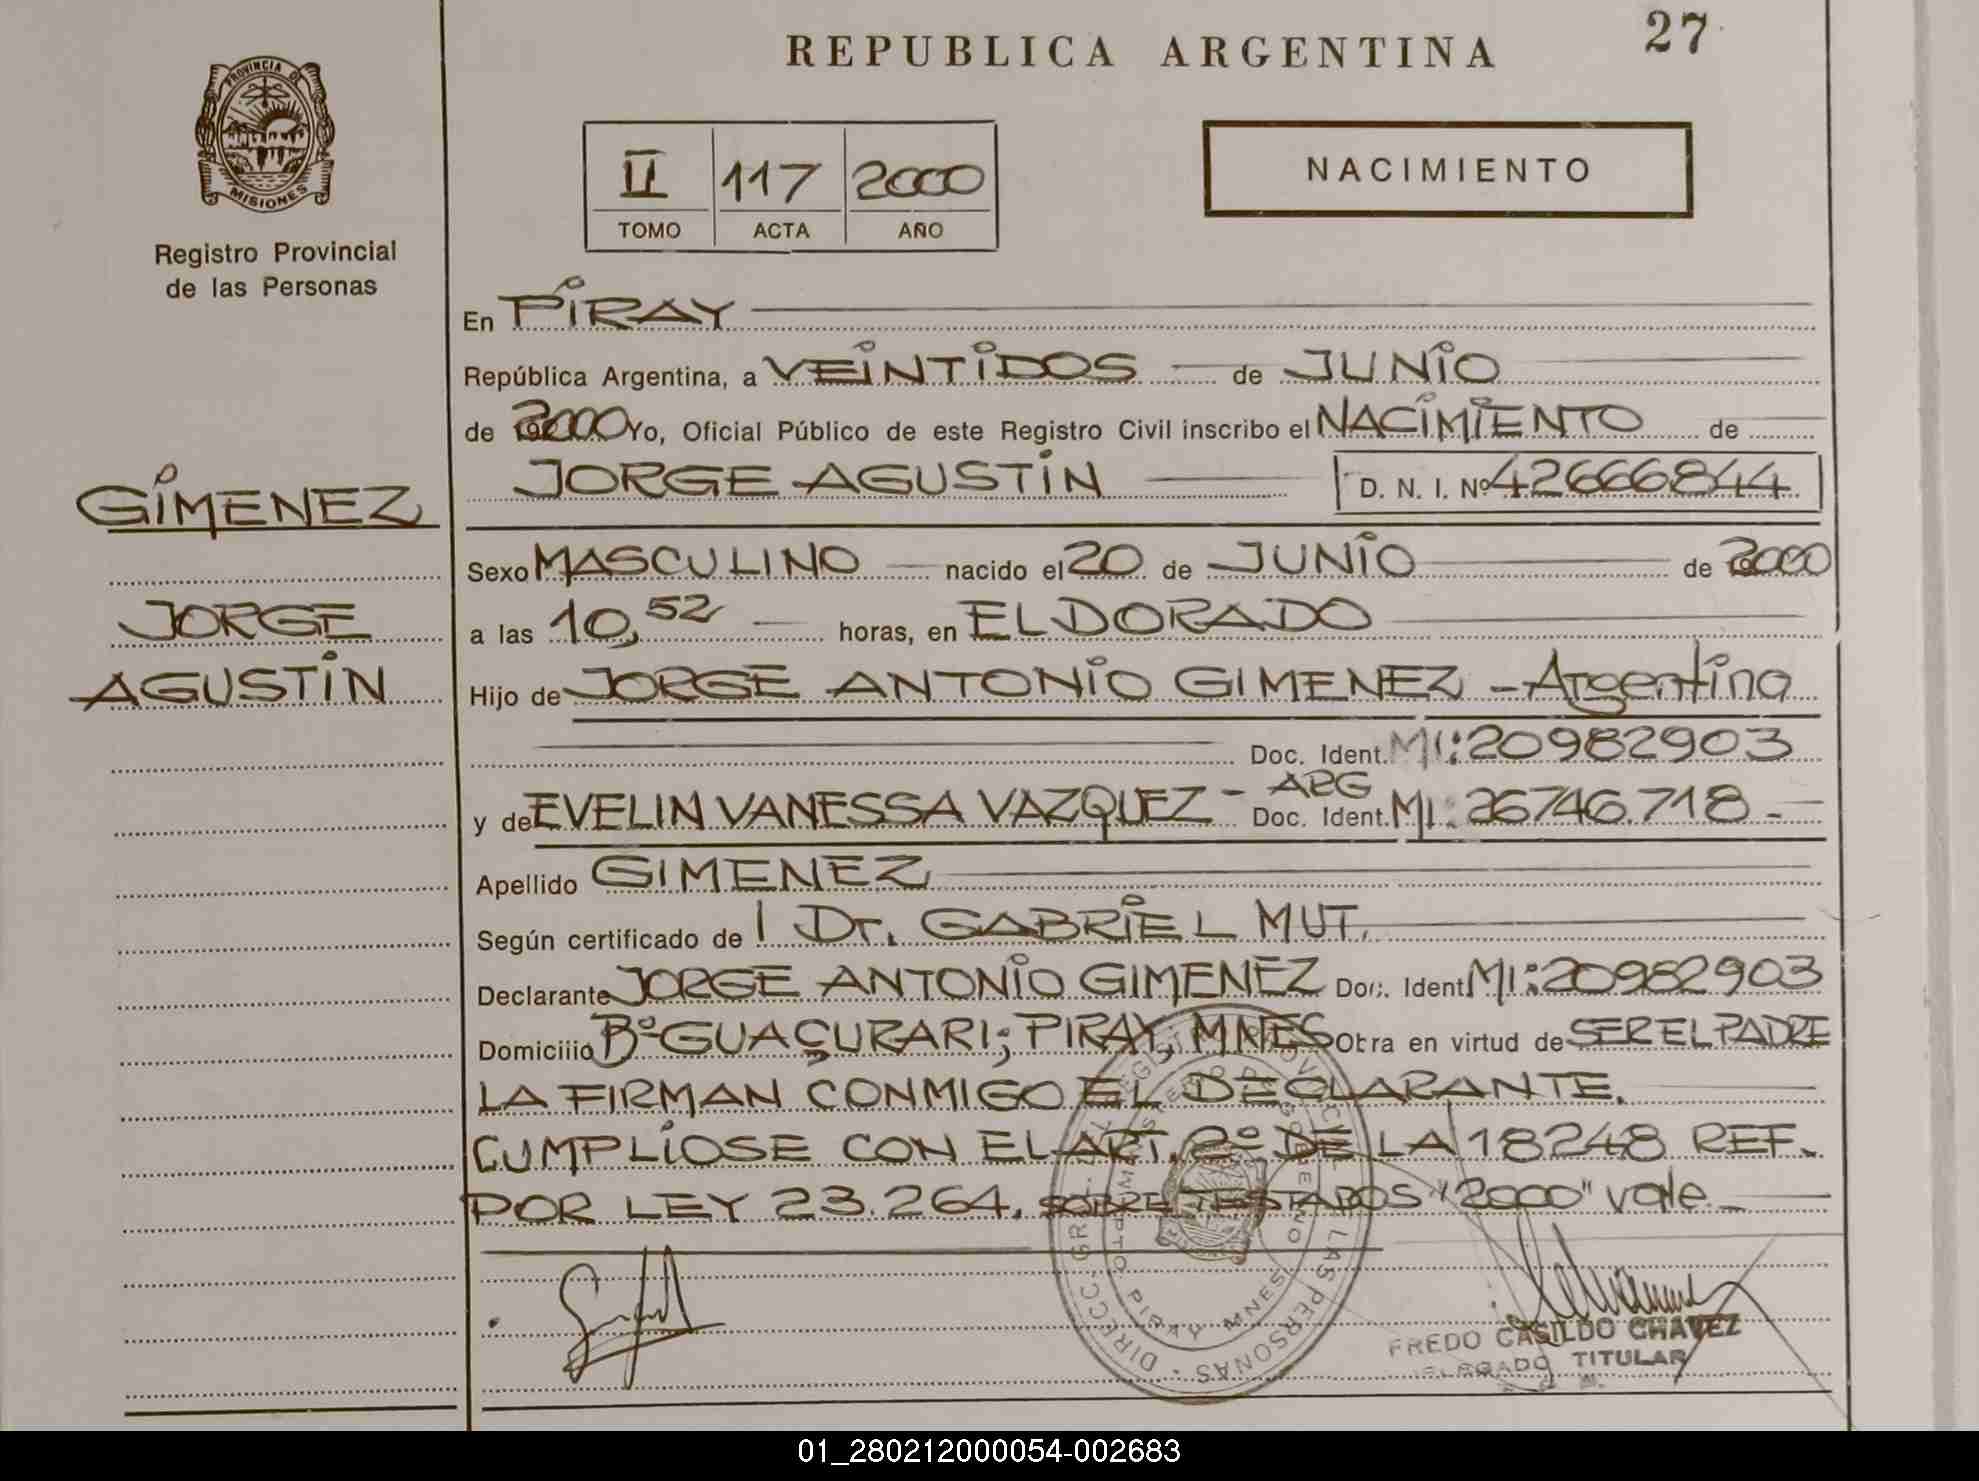 REPUBLICA ARGENTINA
27
PROVINCIA DE
MISIONES
Registro Provincial
de las Personas
II 117 2000
TOMO ACTA AÑO
NACIMIENTO
En PIRAY
República Argentina, a VEINTIDOS de JUNIO
de 2000 Yo, Oficial Público de este Registro Civil inscribo el NACIMIENTO de
JORGE AGUSTIN D. N. I. Nº 42666844
GIMENEZ
JORGE
AGUSTIN
Sexo MASCULINO nacido el 20 de JUNIO de 2000
a las 10,52 horas, en ELDORADO
Hijo de JORGE ANTONIO GIMENEZ - Argentino
Doc. Ident. MI: 20982903
y de EVELIN VANESSA VAZQUEZ - ARG Doc. Ident. MI: 26746.718 -
Apellido GIMENEZ
Según certificado de l Dr. GABRIEL MUT.
Declarante JORGE ANTONIO GIMENEZ Doc. Ident MI: 20982903
Domicilio Bº GUAÇURARI; PIRAY, MNES Obra en virtud de SER EL PADRE
LA FIRMAN CONMIGO EL DECLARANTE.
CUMPLIOSE CON EL ART. 2º DE LA 18248 REF.
POR LEY 23.264. SOBRE TESTADOS "2000" vale.
PIRAY MNES
LAS PERSONAS - DIRECC. GRAL.
FREDO CASILDO CHAVEZ
DELEGADO TITULAR
01_280212000054-002683